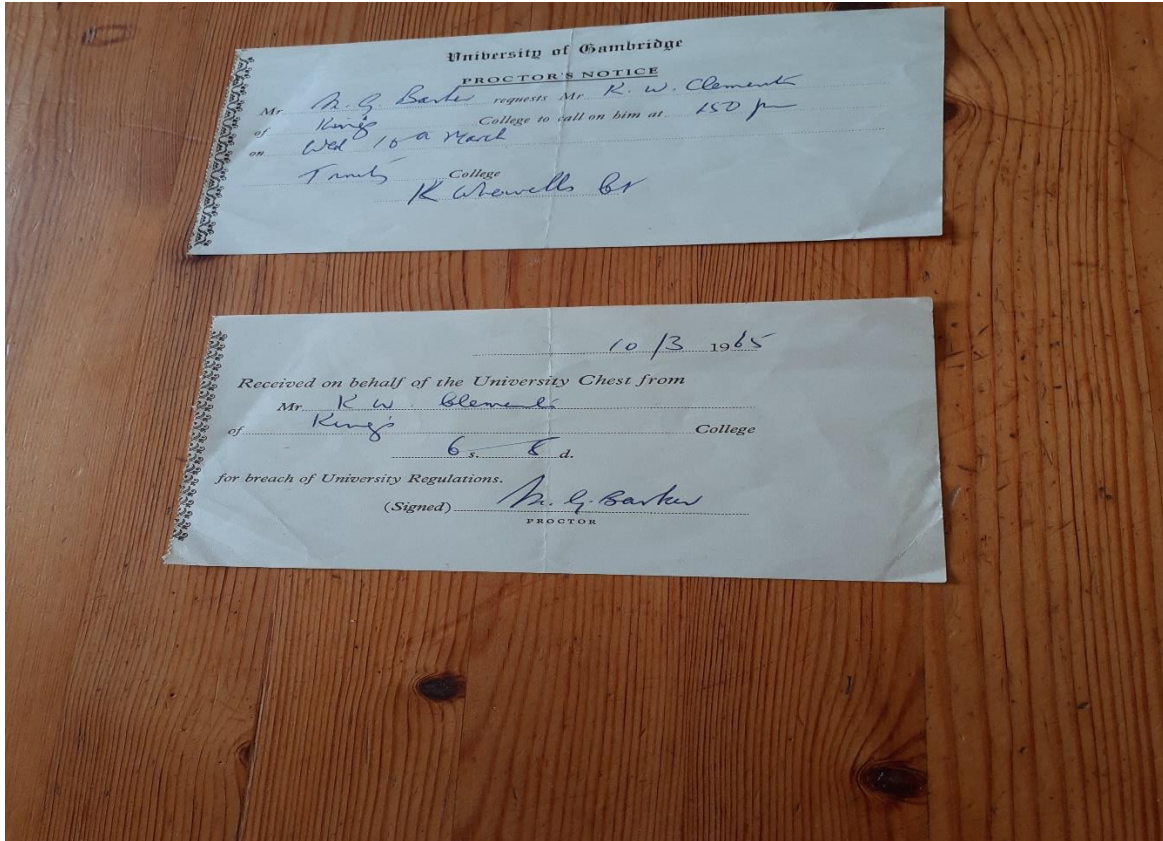 University of Cambridge
PROCTOR'S NOTICE
Mr M. G. Barker requests Mr K. W. Clements
of King's College to call on him at 1 50 pm
on Wed 10th March
Trinity College
K Whewells Ct
10/3 1965
Received on behalf of the University Chest from
Mr K W. Clements
of King's College
6 s. 8 d.
for breach of University Regulations.
(Signed) M. G. Barker
PROCTOR